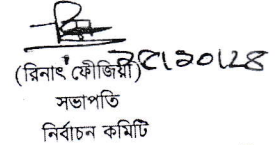 (রিনাৎ ফৌজিয়া) ২৫/১০/২৪
সভাপতি
নির্বাচন কমিটি